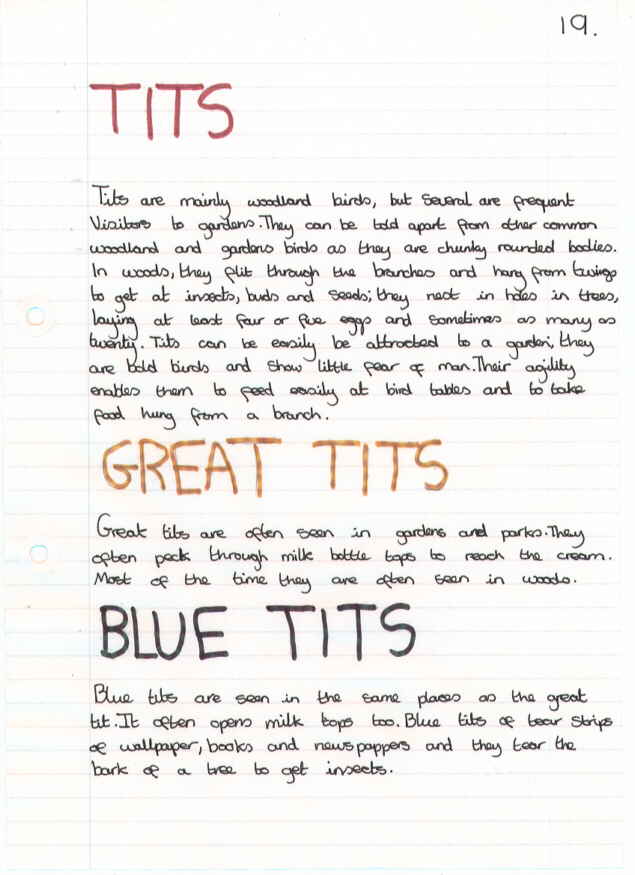 19.
TITS
Tits are mainly woodland birds, but several are frequent
Visitors to gardens. They can be told apart from other common
woodland and gardens birds as they are chunky rounded bodies.
In woods, they flit through the branches and hang from twings
to get at insects, buds and seeds; they nest in holes in trees,
laying at least four or five eggs and sometimes as many as
twenty. Tits can be easily be attracted to a garden, they
are bold birds and show little fear of man. Their agility
enables them to feed easily at bird tables and to take
food hung from a branch.
GREAT TITS
Great tits are often seen in gardens and parks. They
often peck through milk bottle tops to reach the cream.
Most of the time they are often seen in woods.
BLUE TITS
Blue tits are seen in the same places as the great
tit. It often opens milk tops too. Blue tits of tear strips
of wallpaper, books and newspappers and they tear the
bark of a tree to get insects.